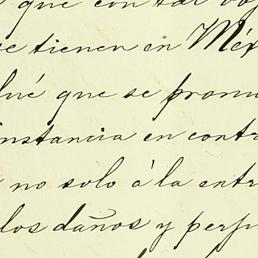 que con tal
se tienen en Méx
fué que se prom
instancia en contr
no solo á la entr
los daños y perju